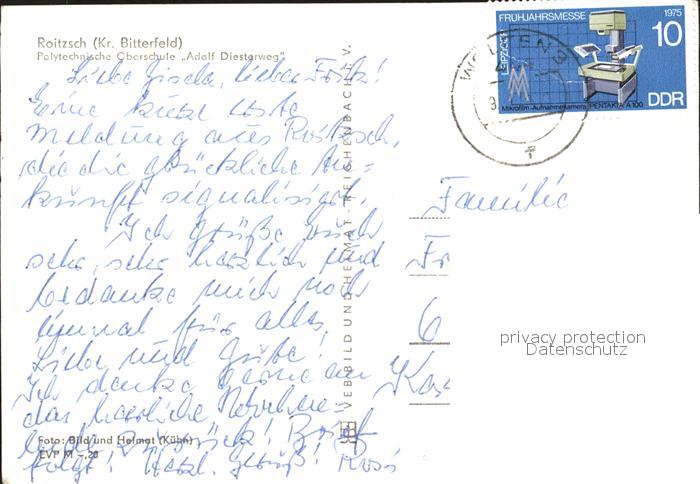 Roitzsch (Kr. Bitterfeld)
Polytechnische Oberschule „Adolf Diesterweg"
Liebe Gisela, lieber Fritz!
Eine kurze erste
Meldung aus Roitzsch,
die die glückliche An-
kunft signalisiert.
Ich grüße Euch
sehr, sehr herzlich und
bedanke mich noch
einmal für alles
Liebe und Gute!
Ich denke gerne an
das herrliche
zurück! Brief
folgt! Herzl. Gruß! Rosi
Foto: Bild und Heimat (Kühn)
EVP M -,20
VEB BILD UND HEIMAT · REICHENBACH i. V.
LEIPZIGER
FRÜHJAHRSMESSE
1975
10
MM
Mikrofilm-Aufnahmekamera PENTAKTA A 100
DDR
Familie
Fr
6
Kas
privacy protection
Datenschutz